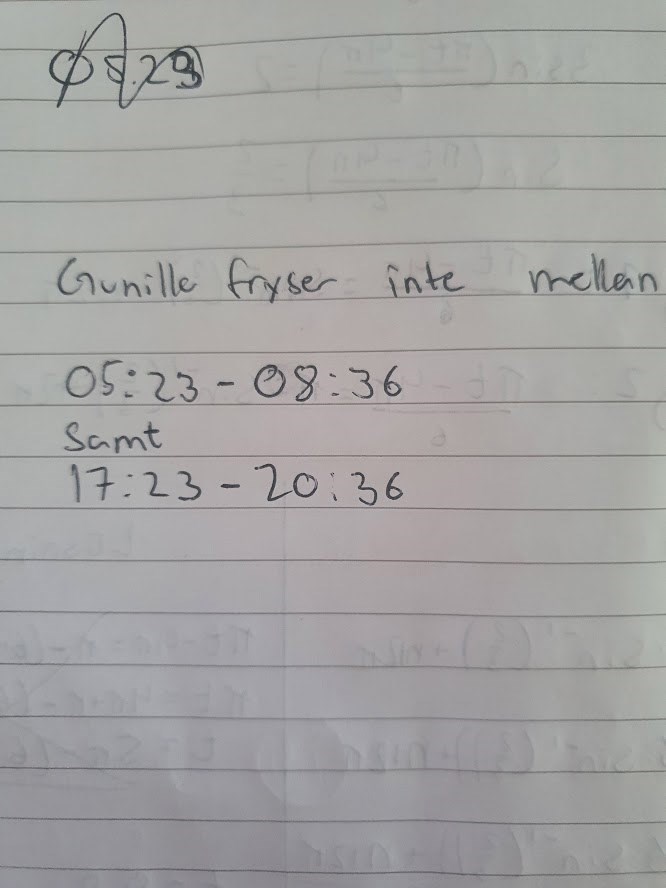 Gunilla fryser inte mellan
05:23 - 08:36
Samt
17:23 - 20:36